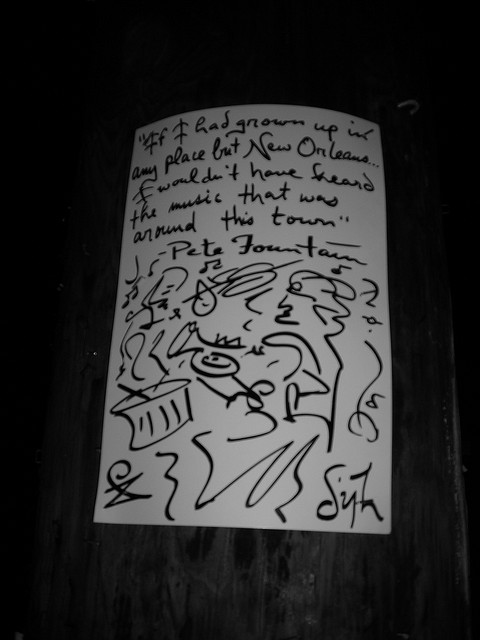 "If I had grown up in
any place but New Orleans...
I wouldn't have heard
the music that was
around this town"
- Pete Fountain